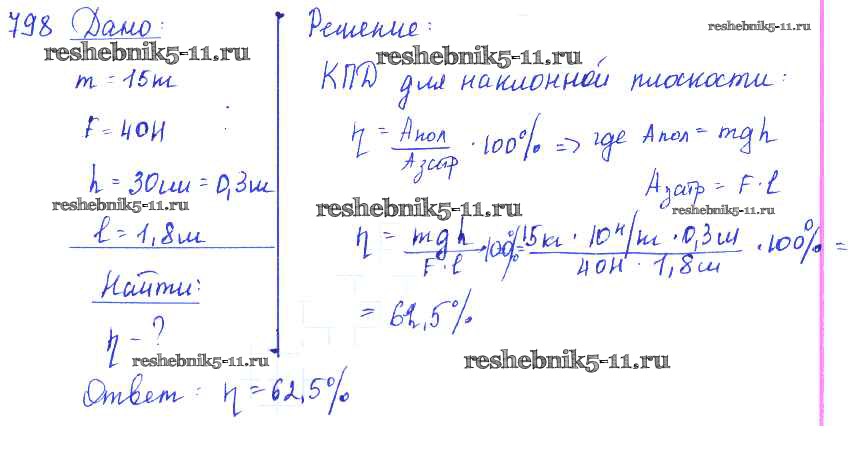 798 Дано:
reshebnik5-11.ru
m = 15кг
F = 40Н
h = 30см = 0,3м
reshebnik5-11.ru
l = 1,8м
Найти:
η - ?
reshebnik5-11.ru
Ответ: η = 62,5%
Решение:
reshebnik5-11.ru
reshebnik5-11.ru
КПД для наклонной плоскости:
η = Апол / Азатр · 100% => где Апол = mgh
Азатр = F · l
reshebnik5-11.ru
reshebnik5-11.ru
η = mgh / F · l · 100% = 15кг · 10 Н/кг · 0,3м / 40Н · 1,8м · 100% =
= 62,5%
reshebnik5-11.ru